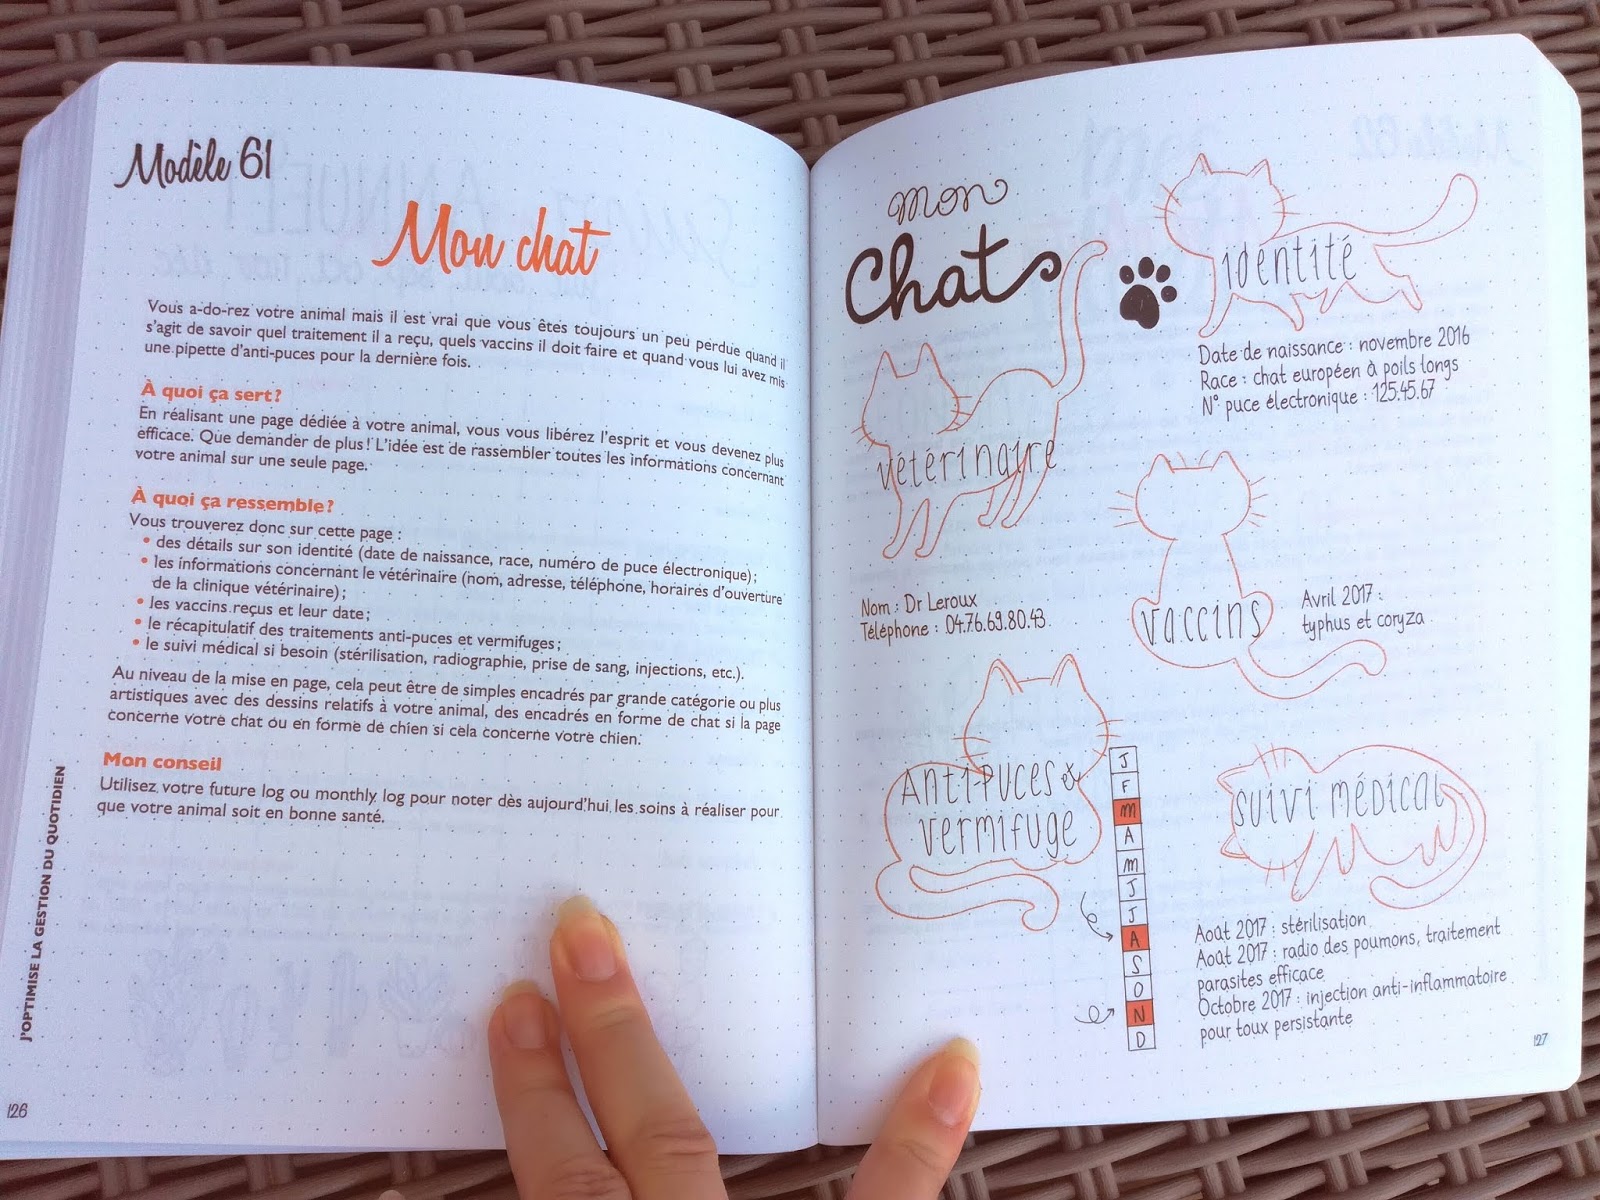 Modèle 61
Mon chat
Vous a-do-rez votre animal mais il est vrai que vous êtes toujours un peu perdue quand il
s'agit de savoir quel traitement il a reçu, quels vaccins il doit faire et quand vous lui avez mis
une pipette d'anti-puces pour la dernière fois.
À quoi ça sert ?
En réalisant une page dédiée à votre animal, vous vous libérez l'esprit et vous devenez plus
efficace. Que demander de plus ! L'idée est de rassembler toutes les informations concernant
votre animal sur une seule page.
À quoi ça ressemble ?
Vous trouverez donc sur cette page :
• des détails sur son identité (date de naissance, race, numéro de puce électronique) ;
• les informations concernant le vétérinaire (nom, adresse, téléphone, horaires d'ouverture
de la clinique vétérinaire) ;
• les vaccins reçus et leur date ;
• le récapitulatif des traitements anti-puces et vermifuges ;
• le suivi médical si besoin (stérilisation, radiographie, prise de sang, injections, etc.).
Au niveau de la mise en page, cela peut être de simples encadrés par grande catégorie ou plus
artistiques avec des dessins relatifs à votre animal, des encadrés en forme de chat si la page
concerne votre chat ou en forme de chien si cela concerne votre chien.
Mon conseil
Utilisez votre future log ou monthly log pour noter dès aujourd'hui les soins à réaliser pour
que votre animal soit en bonne santé.
J'OPTIMISE LA GESTION DU QUOTIDIEN
126
mon
Chat
identité
Date de naissance : novembre 2016
Race : chat européen à poils longs
N° puce électronique : 125.45.67
vétérinaire
Nom : Dr Leroux
Téléphone : 04.76.69.80.43
vaccins
Avril 2017 :
typhus et coryza
Anti-puces et
vermifuge
J
F
M
A
M
J
J
A
S
O
N
D
suivi médical
Août 2017 : stérilisation
Août 2017 : radio des poumons, traitement
parasites efficace
Octobre 2017 : injection anti-inflammatoire
pour toux persistante
127